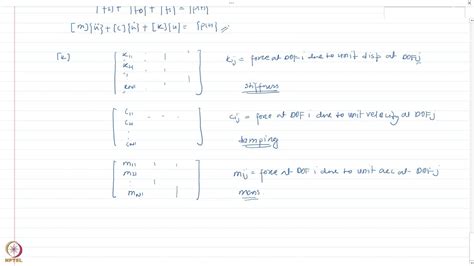 {fI} + {fD} + {fS} = {p(t)}
[m]{ü} + [c]{u̇} + [k]{u} = {p(t)}
[k]
k11
k21
kN1
kij = force at DOF i due to unit disp at DOF j
stiffness
c11
c21
cN1
cij = force at DOF i due to unit velocity at DOF j
damping
m11
m21
mN1
mij = force at DOF i due to unit acc at DOF j
mass
NPTEL